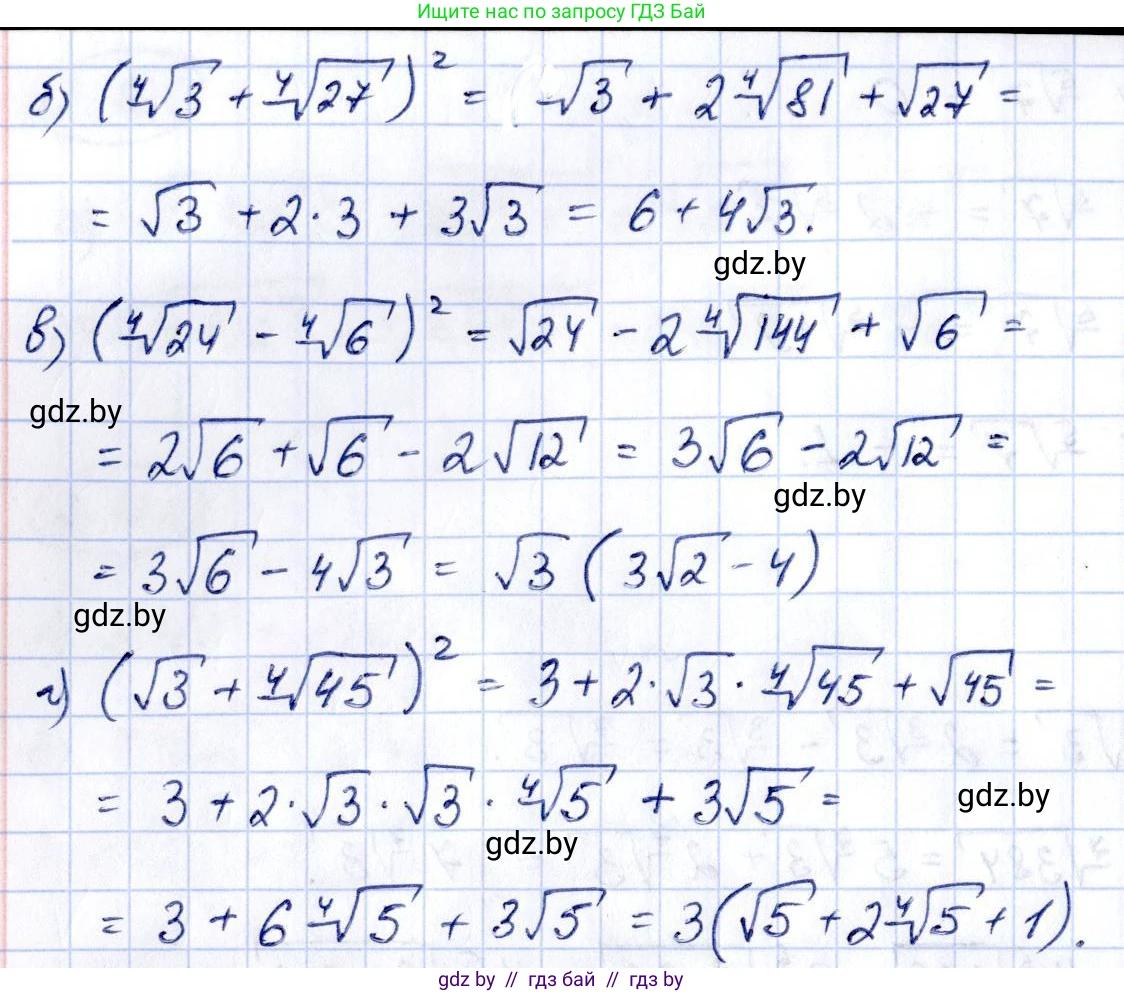 Ищите нас по запросу ГДЗ Бай
б) (⁴√3 + ⁴√27)² = √3 + 2⁴√81 + √27 =
= √3 + 2·3 + 3√3 = 6 + 4√3.
gdz.by
в) (⁴√24 - ⁴√6)² = √24 - 2⁴√144 + √6 =
gdz.by
= 2√6 + √6 - 2√12 = 3√6 - 2√12 =
gdz.by
= 3√6 - 4√3 = √3 (3√2 - 4)
gdz.by
г) (√3 + ⁴√45)² = 3 + 2·√3·⁴√45 + √45 =
= 3 + 2·√3·√3·⁴√5 + 3√5 =
gdz.by
gdz.by
= 3 + 6⁴√5 + 3√5 = 3(√5 + 2⁴√5 + 1).
gdz by // гдз бай // гдз by